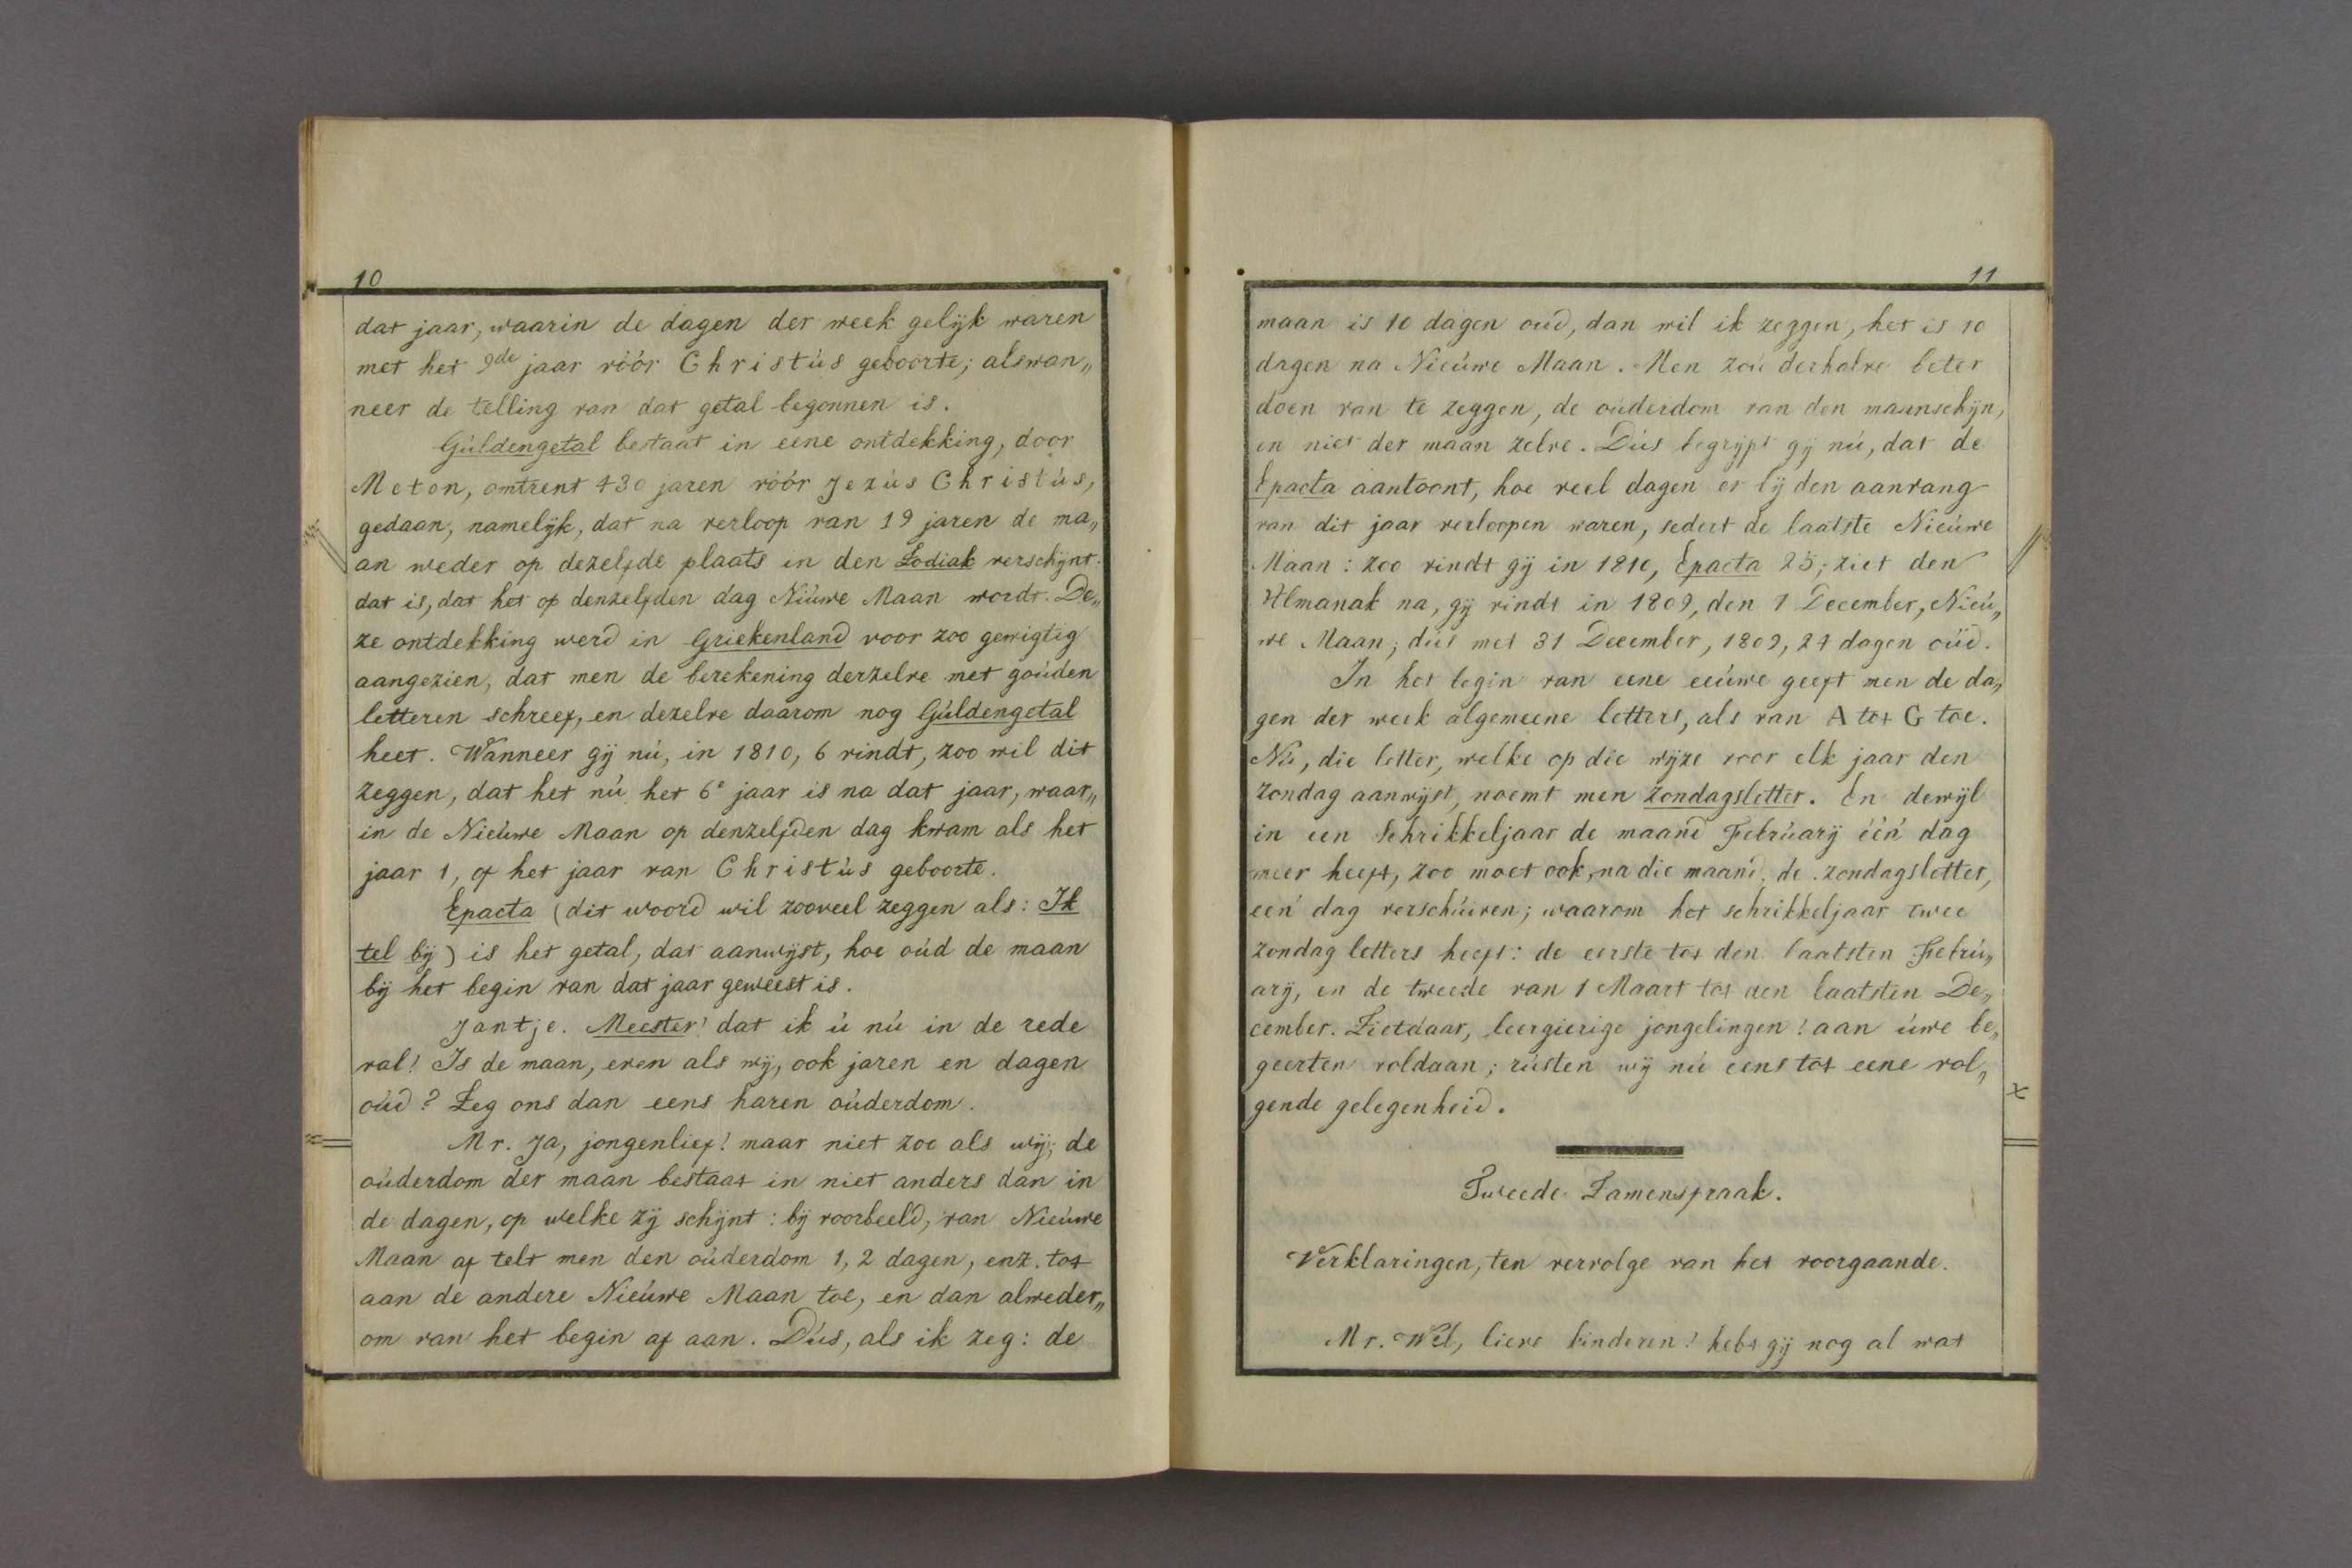 10
dat jaar, waarin de dagen der week gelijk waren
met het 9de jaar vóór Christús geboorte; alswan„
neer de telling van dat getal begonnen is.
Gúldengetal bestaat in eene ontdekking, door
Meton, omtrent 430 jaren vóór Jezús Christús,
gedaan, namelijk, dat na verloop van 19 jaren de ma„
an weder op dezelfde plaats in den Zodiak verschijnt.
dat is, dat het op denzelfden dag Niúwe Maan wordt. De„
ze ontdekking werd in Griekenland voor zoo gewigtig
aangezien, dat men de berekening derzelve met goúden
letteren schreef, en dezelve daarom nog Gúldengetal
heet. Wanneer gij nú, in 1810, 6 vindt, zoo wil dit
zeggen, dat het nú het 6e jaar is na dat jaar, waar„
in de Nieúwe Maan op denzelfden dag kwam als het
jaar 1, of het jaar van Christús geboorte.
Epacta (dit woord wil zooveel zeggen als: Ik
tel bij) is het getal, dat aanwijst, hoe oúd de maan
bij het begin van dat jaar geweest is.
Jantje. Meester! dat ik ú nú in de rede
val! Is de maan, even als wij, ook jaren en dagen
oúd? Zeg ons dan eens haren oúderdom.
Mr. Ja, jongenlief! maar niet zoo als wij; de
oúderdom der maan bestaat in niet anders dan in
de dagen, op welke zij schijnt: bij voorbeeld, van Nieúwe
Maan af telt men den oúderdom 1, 2 dagen, enz. tot
aan de andere Nieúwe Maan toe, en dan alweder„
om van het begin af aan. Dús, als ik zeg: de
11
maan is 10 dagen oúd, dan wil ik zeggen, het is 10
dagen na Nieúwe Maan. Men zoú derhalve beter
doen van te zeggen, de oúderdom van den maanschijn,
en niet der maan zelve. Dús begrijpt gij nú, dat de
Epacta aantoont, hoe veel dagen er bij den aanvang
van dit jaar verloopen waren, sedert de laatste Nieúwe
Maan: zoo vindt gij in 1810, Epacta 25; ziet den
Almanak na, gij vindt in 1809, den 7 December, Nieú„
we Maan; dús met 31 December, 1809, 24 dagen oúd.
In het begin van eene eeúwe geeft men de da„
gen der week algemeene letters, als van A tot G toe.
Nú, die letter, welke op die wijze voor elk jaar den
zondag aanwijst, noemt men zondagsletter. En dewijl
in een Schrikkeljaar de maand Febrúarij één dag
meer heeft, zoo moet ook, na die maand, de zondagsletter,
een dag verschúiven; waarom het schrikkeljaar twee
zondag letters heeft: de eerste tot den laatsten Febrú„
arij, en de tweede van 1 Maart tot den laatsten De„
cember. Zietdaar, leergierige jongelingen! aan úwe be„
geerten voldaan; rústen wij nú eens tot eene vol„
gende gelegenheid.
Tweede Zamenspraak.
Verklaringen, ten vervolge van het voorgaande.
Mr. Wel, lieve kinderen! hebt gij nog al wat